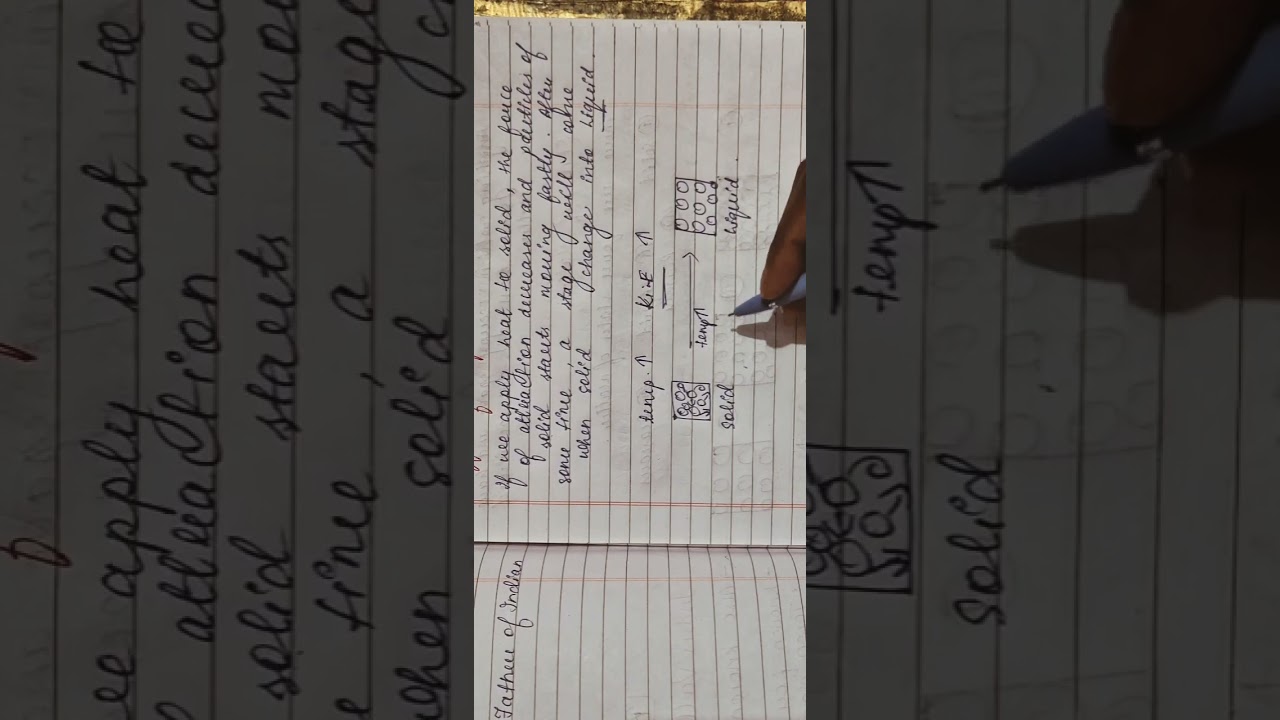 If we apply heat to solid, the force
of attraction decreases and particles of
solid starts moving fastly. After
some time, a stage will come
when solid change into Liquid.
temp. ↑ K.E ↑
temp↑
solid liquid.
Father of Indian